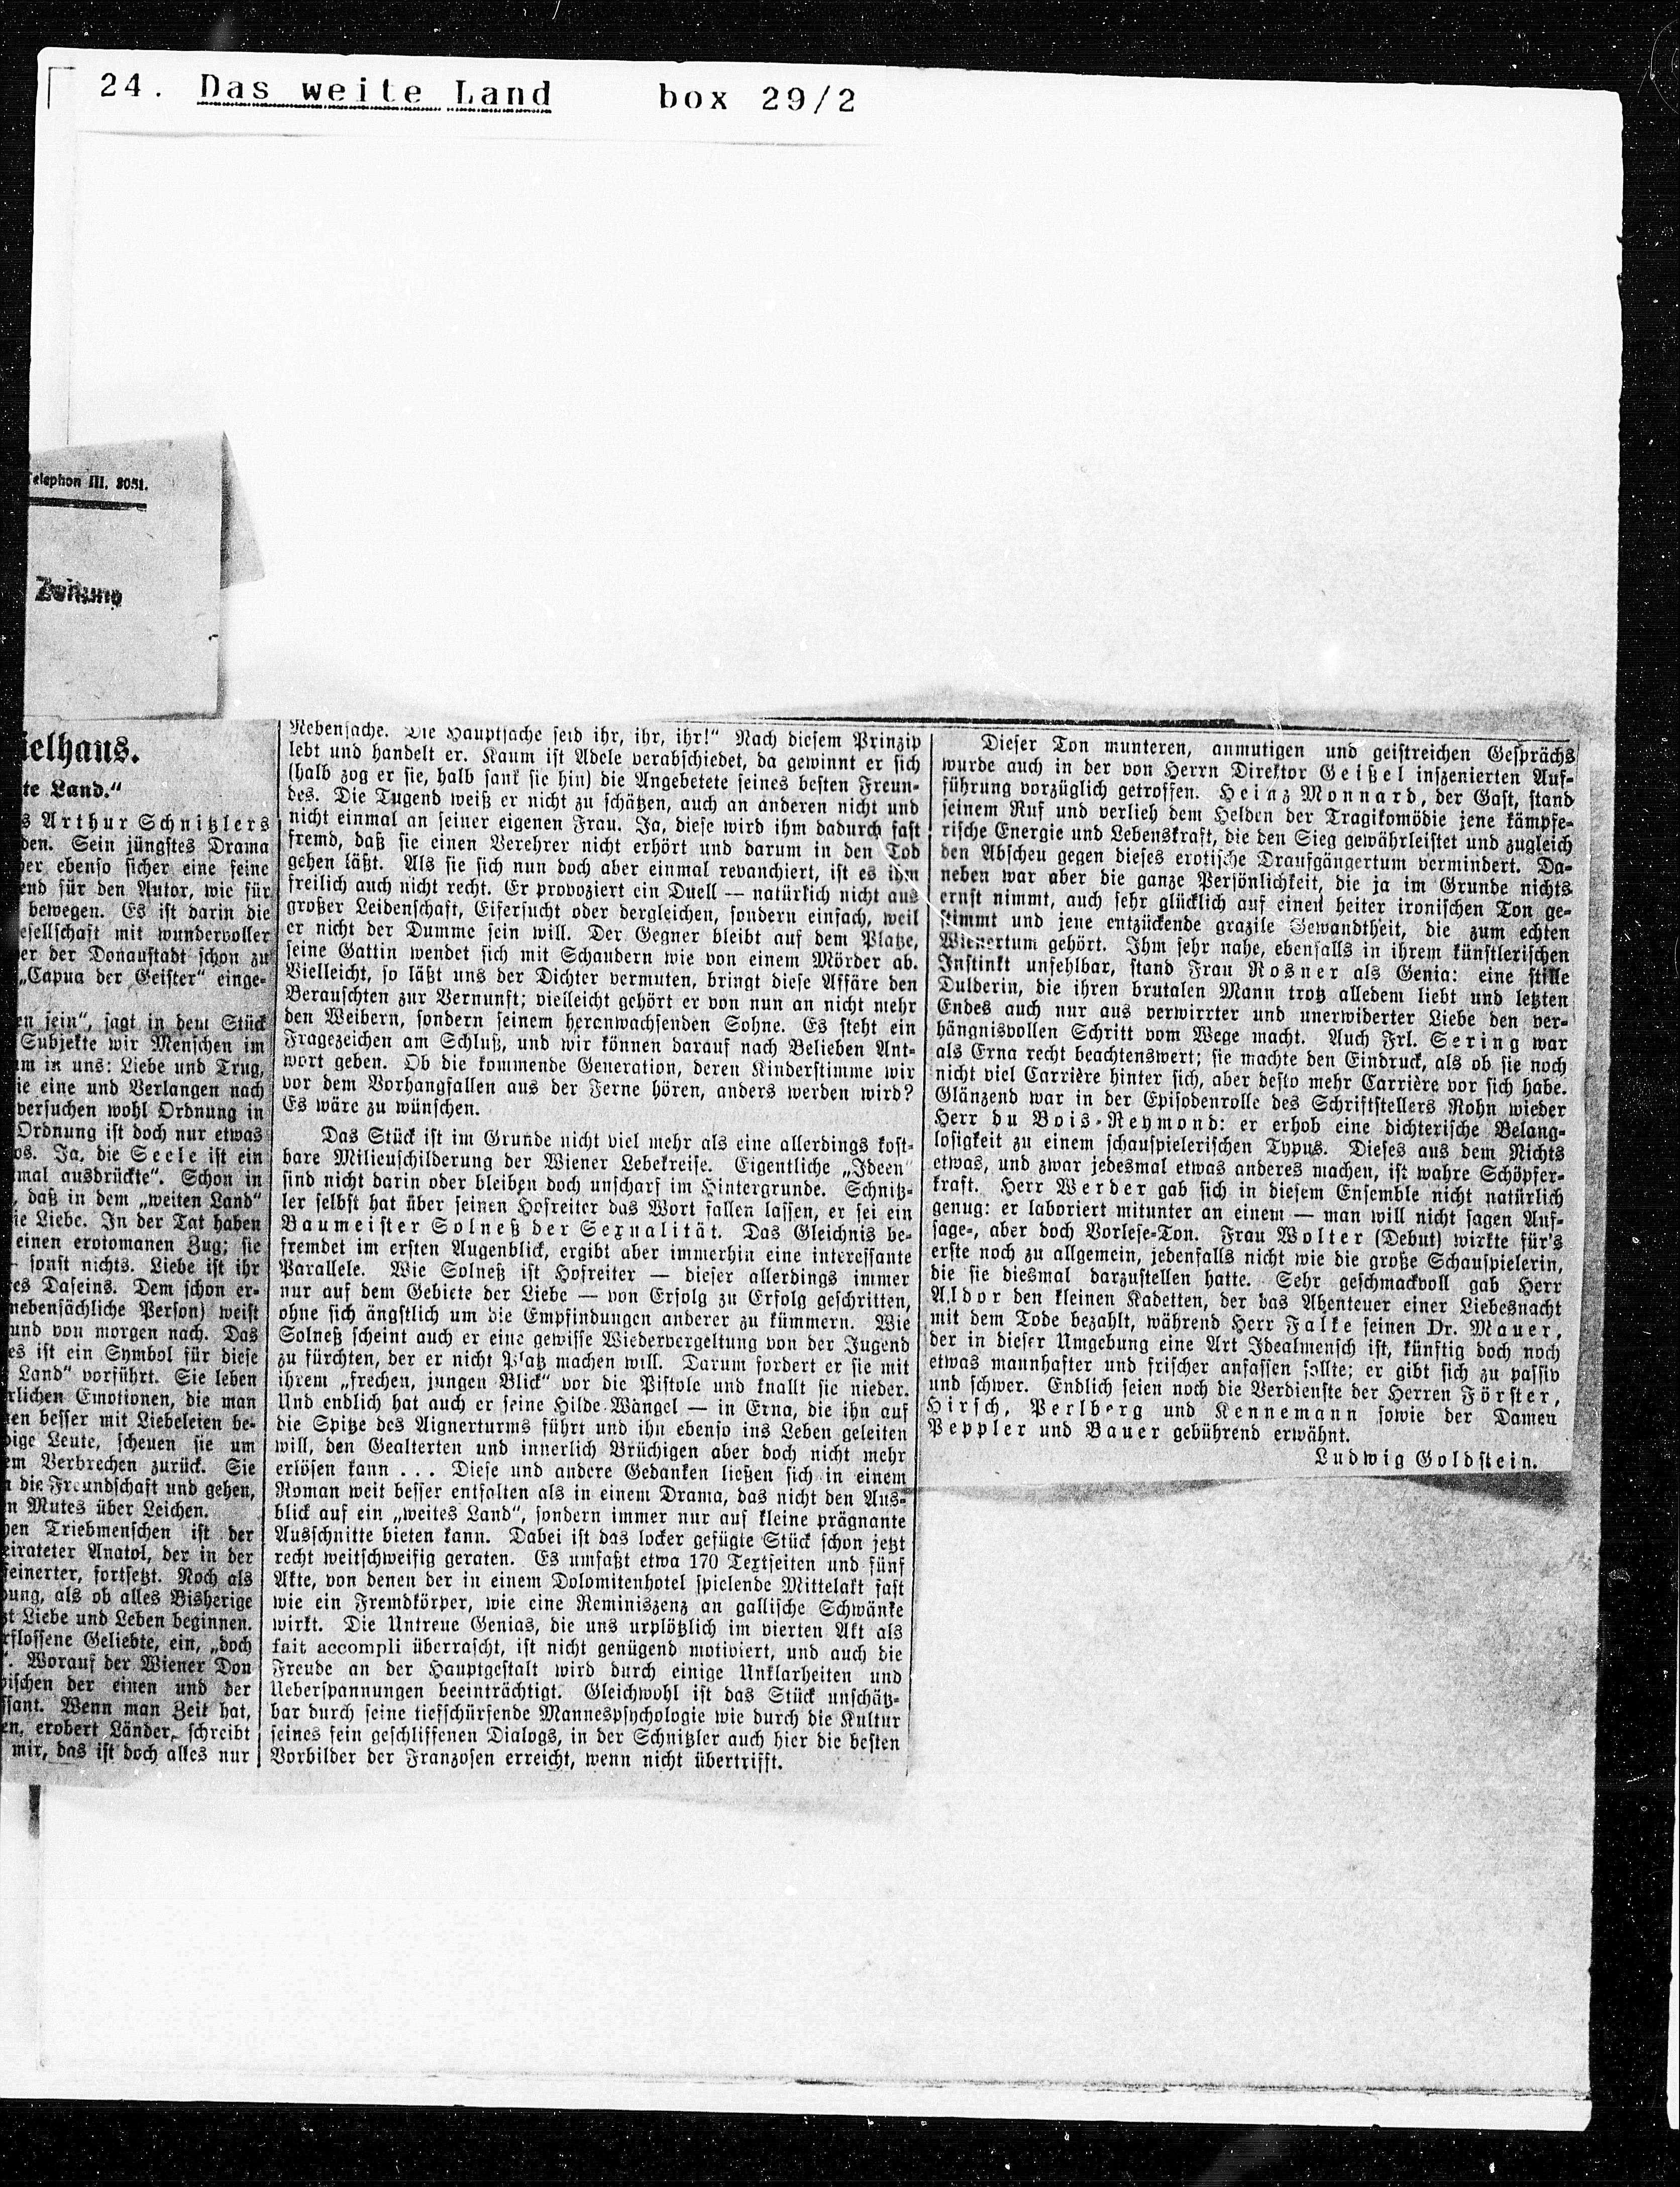 24. Das weite Land box 29/2
Telephon III. 8051.
Zeitung
ielhaus.
te Land.“
s Arthur Schnitzlers
den. Sein jüngstes Drama
er ebenso sicher eine feine
end für den Autor, wie für
bewegen. Es ist darin die
esellschaft mit wundervoller
er der Donaustadt schon zu
„Capua der Geister“ einge-
en sein“, sagt in dem Stück
Subjekte wir Menschen im
m in uns: Liebe und Trug,
ie eine und Verlangen nach
versuchen wohl Ordnung in
Ordnung ist doch nur etwas
os. Ja, die Seele ist ein
mal ausdrückte“. Schon in
, daß in dem „weiten Land“
ie Liebe. In der Tat haben
einen erotomanen Zug; sie
- sonst nichts. Liebe ist ihr
es Daseins. Dem schon er-
nebensächliche Person) weist
und von morgen nach. Das
es ist ein Symbol für diese
Land“ vorführt. Sie leben
rlichen Emotionen, die man
en besser mit Liebeleien be-
ige Leute, scheuen sie um
em Verbrechen zurück. Sie
n die Freundschaft und gehen,
n Mutes über Leichen.
en Triebmenschen ist der
eirateter Anatol, der in der
feinerter, fortsetzt. Noch als
ung, als ob alles Bisherige
zt Liebe und Leben beginnen.
rflossene Geliebte, ein, „doch
“. Worauf der Wiener Don
wischen der einen und der
ssant. Wenn man Zeit hat,
en, erobert Länder, schreibt
mir, das ist doch alles nur
Nebensache. Die Hauptsache seid ihr, ihr, ihr!“ Nach diesem Prinzip
lebt und handelt er. Kaum ist Adele verabschiedet, da gewinnt er sich
(halb zog er sie, halb sank sie hin) die Angebetete seines besten Freun-
des. Die Tugend weiß er nicht zu schätzen, auch an anderen nicht und
nicht einmal an seiner eigenen Frau. Ja, diese wird ihm dadurch fast
fremd, daß sie einen Verehrer nicht erhört und darum in den Tod
gehen läßt. Als sie sich nun doch aber einmal revanchiert, ist es ihm
freilich auch nicht recht. Er provoziert ein Duell — natürlich nicht aus
großer Leidenschaft, Eifersucht oder dergleichen, sondern einfach, weil
er nicht der Dumme sein will. Der Gegner bleibt auf dem Platze,
seine Gattin wendet sich mit Schaudern wie von einem Mörder ab.
Vielleicht, so läßt uns der Dichter vermuten, bringt diese Affäre den
Berauschten zur Vernunft; vielleicht gehört er von nun an nicht mehr
den Weibern, sondern seinem heranwachsenden Sohne. Es steht ein
Fragezeichen am Schluß, und wir können darauf nach Belieben Ant-
wort geben. Ob die kommende Generation, deren Kinderstimme wir
vor dem Vorhangfallen aus der Ferne hören, anders werden wird?
Es wäre zu wünschen.
Das Stück ist im Grunde nicht viel mehr als eine allerdings kost-
bare Milieuschilderung der Wiener Lebekreise. Eigentliche „Ideen“
sind nicht darin oder bleiben doch unscharf im Hintergrunde. Schnitz-
ler selbst hat über seinen Hofreiter das Wort fallen lassen, er sei ein
Baumeister Solneß der Sexualität. Das Gleichnis be-
fremdet im ersten Augenblick, ergibt aber immerhin eine interessante
Parallele. Wie Solneß ist Hofreiter — dieser allerdings immer
nur auf dem Gebiete der Liebe — von Erfolg zu Erfolg geschritten,
ohne sich ängstlich um die Empfindungen anderer zu kümmern. Wie
Solneß scheint auch er eine gewisse Wiedervergeltung von der Jugend
zu fürchten, der er nicht Platz machen will. Darum fordert er sie mit
ihrem „frechen, jungen Blick“ vor die Pistole und knallt sie nieder.
Und endlich hat auch er seine Hilde-Wangel — in Erna, die ihn auf
die Spitze des Aignerturms führt und ihn ebenso ins Leben geleiten
will, den Gealterten und innerlich Brüchigen aber doch nicht mehr
erlösen kann ... Diese und andere Gedanken ließen sich in einem
Roman weit besser entfalten als in einem Drama, das nicht den Aus-
blick auf ein „weites Land“, sondern immer nur auf kleine prägnante
Ausschnitte bieten kann. Dabei ist das locker gefügte Stück schon jetzt
recht weitschweifig geraten. Es umfaßt etwa 170 Textseiten und fünf
Akte, von denen der in einem Dolomitenhotel spielende Mittelakt fast
wie ein Fremdkörper, wie eine Reminiszenz an gallische Schwänke
wirkt. Die Untreue Genias, die uns urplötzlich im vierten Akt als
fait accompli überrascht, ist nicht genügend motiviert, und auch die
Freude an der Hauptgestalt wird durch einige Unklarheiten und
Ueberspannungen beeinträchtigt. Gleichwohl ist das Stück unschätz-
bar durch seine tiefschürfende Mannespsychologie wie durch die Kultur
seines fein geschliffenen Dialogs, in der Schnitzler auch hier die besten
Vorbilder der Franzosen erreicht, wenn nicht übertrifft.
Dieser Ton munteren, anmutigen und geistreichen Gesprächs
wurde auch in der von Herrn Direktor Geißel inszenierten Auf-
führung vorzüglich getroffen. Heinz Monnard, der Gast, stand
seinem Ruf und verlieh dem Helden der Tragikomödie jene kämpfe-
rische Energie und Lebenskraft, die den Sieg gewährleistet und zugleich
den Abscheu gegen dieses erotische Draufgängertum vermindert. Da-
neben war aber die ganze Persönlichkeit, die ja im Grunde nichts
ernst nimmt, auch sehr glücklich auf einen heiter ironischen Ton ge-
stimmt und jene entzückende grazile Gewandtheit, die zum echten
Wienertum gehört. Ihm sehr nahe, ebenfalls in ihrem künstlerischen
Instinkt unfehlbar, stand Frau Rosner als Genia: eine stille
Dulderin, die ihren brutalen Mann trotz alledem liebt und letzten
Endes auch nur aus verwirrter und unerwiderter Liebe den ver-
hängnisvollen Schritt vom Wege macht. Auch Frl. Sering war
als Erna recht beachtenswert; sie machte den Eindruck, als ob sie noch
nicht viel Carrière hinter sich, aber desto mehr Carrière vor sich habe.
Glänzend war in der Episodenrolle des Schriftstellers Rohn wieder
Herr du Bois-Reymond: er erhob eine dichterische Belang-
losigkeit zu einem schauspielerischen Typus. Dieses aus dem Nichts
etwas, und zwar jedesmal etwas anderes machen, ist wahre Schöpfer-
kraft. Herr Werder gab sich in diesem Ensemble nicht natürlich
genug: er laboriert mitunter an einem — man will nicht sagen Auf-
sage-, aber doch Vorlese-Ton. Frau Wolter (Debut) wirkte für's
erste noch zu allgemein, jedenfalls nicht wie die große Schauspielerin,
die sie diesmal darzustellen hatte. Sehr geschmackvoll gab Herr
Aldor den kleinen Kadetten, der das Abenteuer einer Liebesnacht
mit dem Tode bezahlt, während Herr Falke seinen Dr. Mauer,
der in dieser Umgebung eine Art Idealmensch ist, künftig doch noch
etwas mannhafter und frischer anfassen sollte; er gibt sich zu passiv
und schwer. Endlich seien noch die Verdienste der Herren Förster,
Hirsch, Perlberg und Kennemann sowie der Damen
Peppler und Bauer gebührend erwähnt.
Ludwig Goldstein.